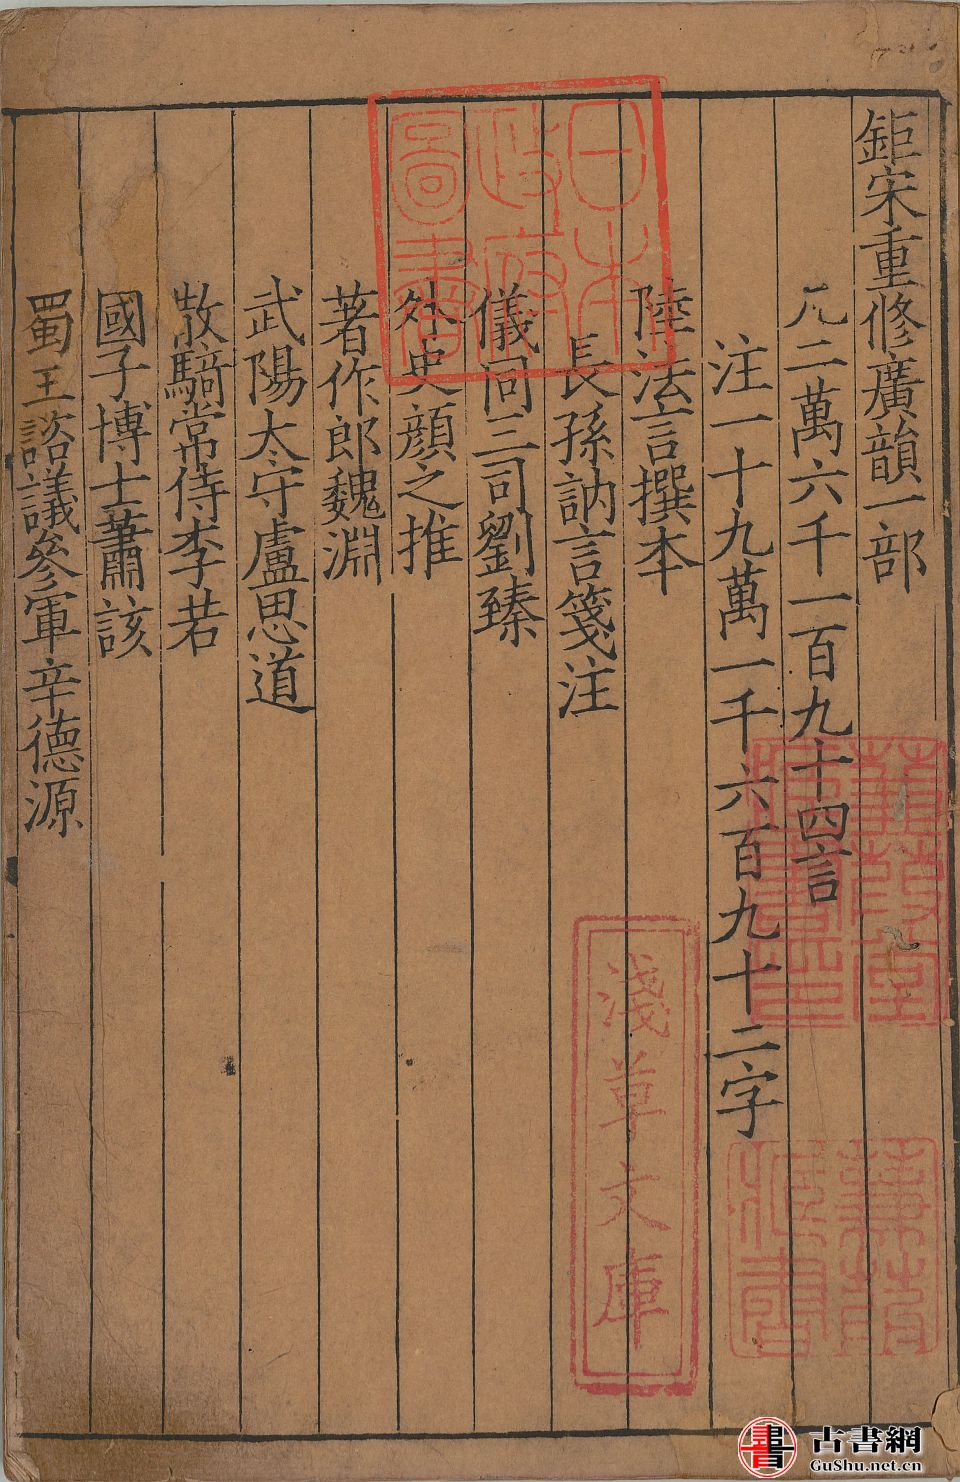 鉅宋重修廣韻一部
凡二萬六千一百九十四言
注一十九萬一千六百九十二字
陸法言撰本
長孫訥言箋注
儀同三司劉臻
外史顏之推
著作郎魏淵
武陽太守盧思道
散騎常侍李若
國子博士蕭該
蜀王諮議參軍辛德源
日本
政府
圖書
淺草文庫
古書網
GuShu.net.cn